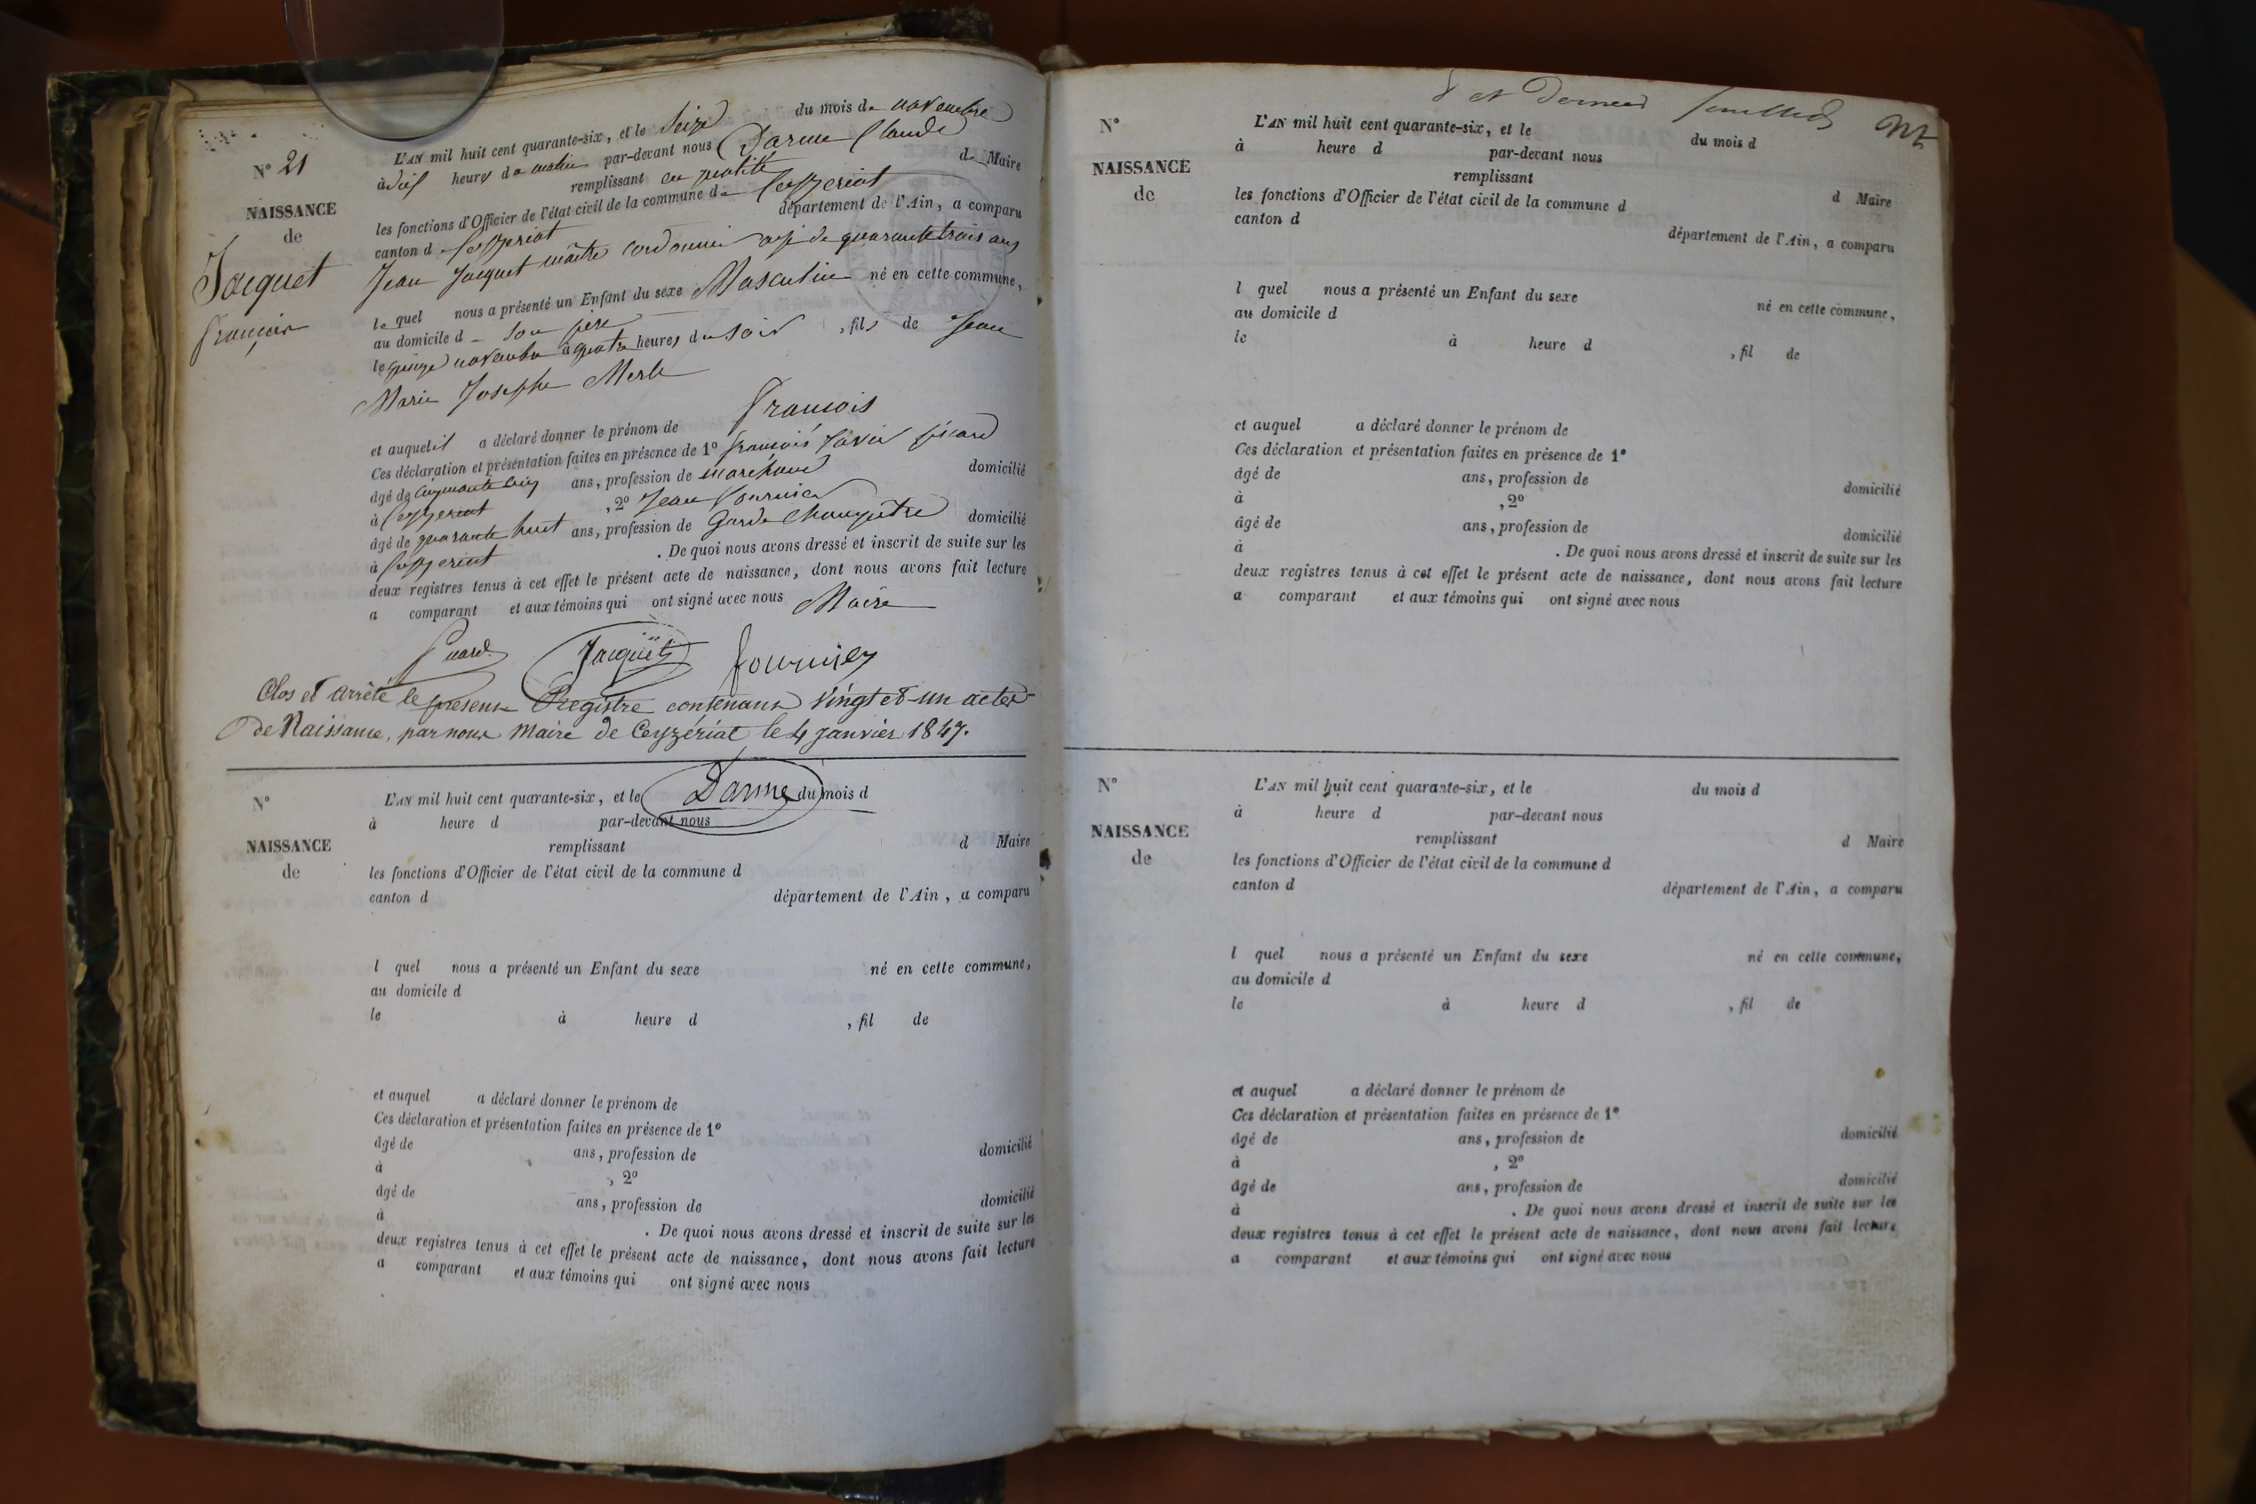 N° 21
NAISSANCE
de
Jacquet
françois
L'AN mil huit cent quarante-six, et le Seize du mois de novembre
à dix heures du matin par-devant nous Darme Claude
remplissant en qualité de Maire
les fonctions d'Officier de l'état civil de la commune de Ceyzeriat
canton de Ceyzeriat département de l'Ain, a comparu
Jean Jacquet maître cordonnier agé de quarante trois ans
lequel nous a présenté un Enfant du sexe Masculin né en cette commune,
au domicile de Son père
le quinze novembre à quatre heures du soir, fils de Jean
Marie Josephe Merle
et auquel il a déclaré donner le prénom de francois
Ces déclaration et présentation faites en présence de 1° françois
âgé de cinquante cinq ans, profession de marchand domicilié
à Ceyzeriat, 2° Jean fournier
âgé de quarante huit ans, profession de Garde Champêtre domicilié
à Ceyzeriat. De quoi nous avons dressé et inscrit de suite sur les
deux registres tenus à cet effet le présent acte de naissance, dont nous avons fait lecture
a comparant et aux témoins qui ont signé avec nous Maire
Jacquet fournier
Clos et arrêté le présent Registre contenant vingt et un actes
de Naissance, par nous Maire de Ceyzériat, le 4 janvier 1847.
Darme
N°
NAISSANCE
de
L'AN mil huit cent quarante-six, et le du mois d
à heure d par-devant nous
remplissant d Maire
les fonctions d'Officier de l'état civil de la commune d
canton d département de l'Ain, a comparu
l quel nous a présenté un Enfant du sexe né en cette commune,
au domicile d
le à heure d , fil de
et auquel a déclaré donner le prénom de
Ces déclaration et présentation faites en présence de 1°
âgé de ans, profession de domicilié
à , 2°
âgé de ans, profession de domicilié
à . De quoi nous avons dressé et inscrit de suite sur les
deux registres tenus à cet effet le présent acte de naissance, dont nous avons fait lecture
a comparant et aux témoins qui ont signé avec nous
8 et Dernier feuillet
N°
NAISSANCE
de
L'AN mil huit cent quarante-six, et le du mois d
à heure d par-devant nous
remplissant d Maire
les fonctions d'Officier de l'état civil de la commune d
canton d département de l'Ain, a comparu
l quel nous a présenté un Enfant du sexe né en cette commune,
au domicile d
le à heure d , fil de
et auquel a déclaré donner le prénom de
Ces déclaration et présentation faites en présence de 1°
âgé de ans, profession de domicilié
à , 2°
âgé de ans, profession de domicilié
à . De quoi nous avons dressé et inscrit de suite sur les
deux registres tenus à cet effet le présent acte de naissance, dont nous avons fait lecture
a comparant et aux témoins qui ont signé avec nous
N°
NAISSANCE
de
L'AN mil huit cent quarante-six, et le du mois d
à heure d par-devant nous
remplissant d Maire
les fonctions d'Officier de l'état civil de la commune d
canton d département de l'Ain, a comparu
l quel nous a présenté un Enfant du sexe né en cette commune,
au domicile d
le à heure d , fil de
et auquel a déclaré donner le prénom de
Ces déclaration et présentation faites en présence de 1°
âgé de ans, profession de domicilié
à , 2°
âgé de ans, profession de domicilié
à . De quoi nous avons dressé et inscrit de suite sur les
deux registres tenus à cet effet le présent acte de naissance, dont nous avons fait lecture
a comparant et aux témoins qui ont signé avec nous